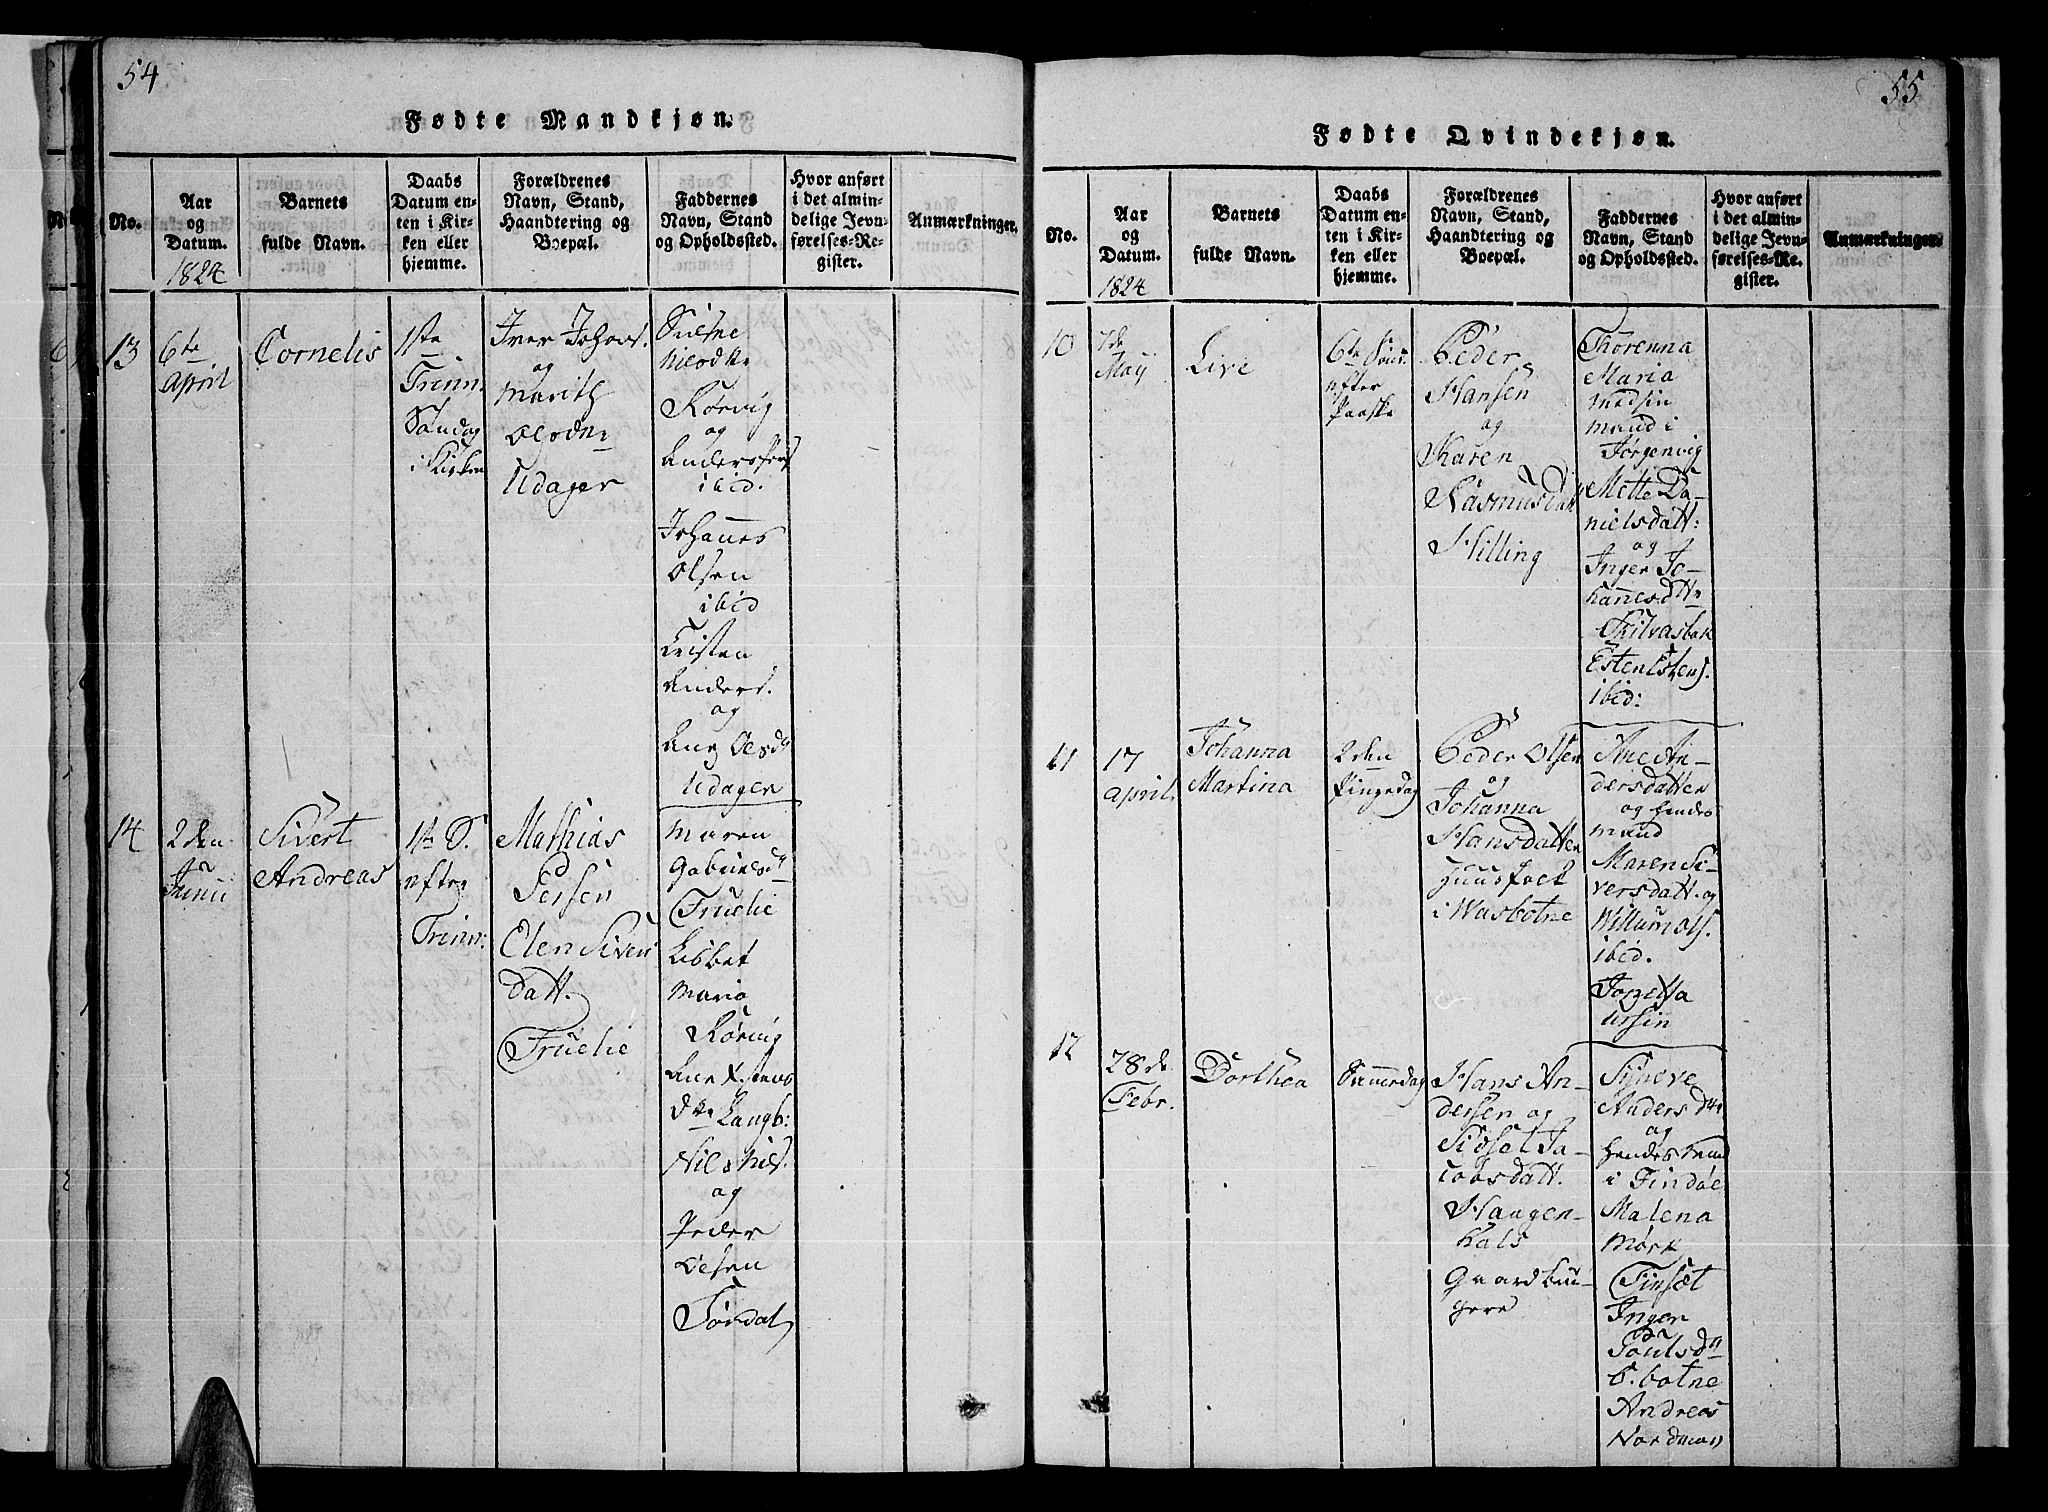 54
Fødte Mandkjøn.
No.
Aar
og
Datum.
1824
Barnets
fulde Navn.
Daabs
Datum en-
ten i Kir-
ken eller
hjemme.
Forældrenes
Navn, Stand,
Haandtering og
Boepæl.
Faddernes
Navn, Stand
og Opholdssted.
Hvor anført
i det almin-
delige Jevn-
førelses-Re-
gister.
Anmærkninger.
13
6te
April
Cornelis
1ste
Trin.
Søndag
i Kirken
Iver Johans.
og
Marith
Olsdtr
Udager
Nilsdtr
Rørvig
og
Anders
ibid.
Johannes
Olsen
ibid
Cristen
Anders.
og
Ane Olsd
Udager
14
2den
Junii
Sivert
Andreas
1ste S.
efter
Trin:
Mathias
Persen
Elen Sivers
Datt.
Truelie
Maren
Gabrielsd
Truelie
Lisbet
Maria
Rørvig
Ane
Langb:
Nils Nils.
og
Peder
Olsen
Tørdal
55
Fødte Qvindekjøn.
No.
Aar
og
Datum.
1824
Barnets
fulde Navn.
Daabs
Datum en-
ten i Kir-
ken eller
hjemme.
Forældrenes
Navn, Stand,
Haandtering og
Boepæl.
Faddernes
Navn, Stand
og Opholdssted.
Hvor anført
i det almin-
delige Jevn-
førelses-Re-
gister.
Anmærkninger.
10
May
Live
6te
efter
Paaske
Peder
Hansen
og
Karen
Rasmusdatt
Hilling
Thorenna
Maria
Madsin
mand i
Jørgenvig
Mette Da-
nielsdatt:
og
Inger Jo-
hannesdtr
Esten Estens.
ibid:
11
17
April
Johanna
Martina
2den
Pingsdag
Peder Olsen
og
Johanna
Hansdatter
Huusfolk
i Wasbotne
Ane An-
dersdatter
og hendes
mand
Maren Si-
versdatt. og
Willum Ols.
ibid.
Jonetta
Ursin
12
28de
Febr.
Dorthea
Hans An-
dersen og
Sidsel Ja-
cobsdatt.
Haugen-
hals
Gaardbru-
gere
Syneve
Andersdtr
og
hendes mand
i Findøe
Malena
Mørk
Finsæt
Inger
Poulsd
botne
Andreas
Nordman